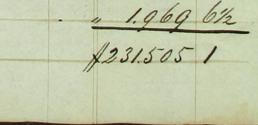 " 1.969 6½
$231.505 1